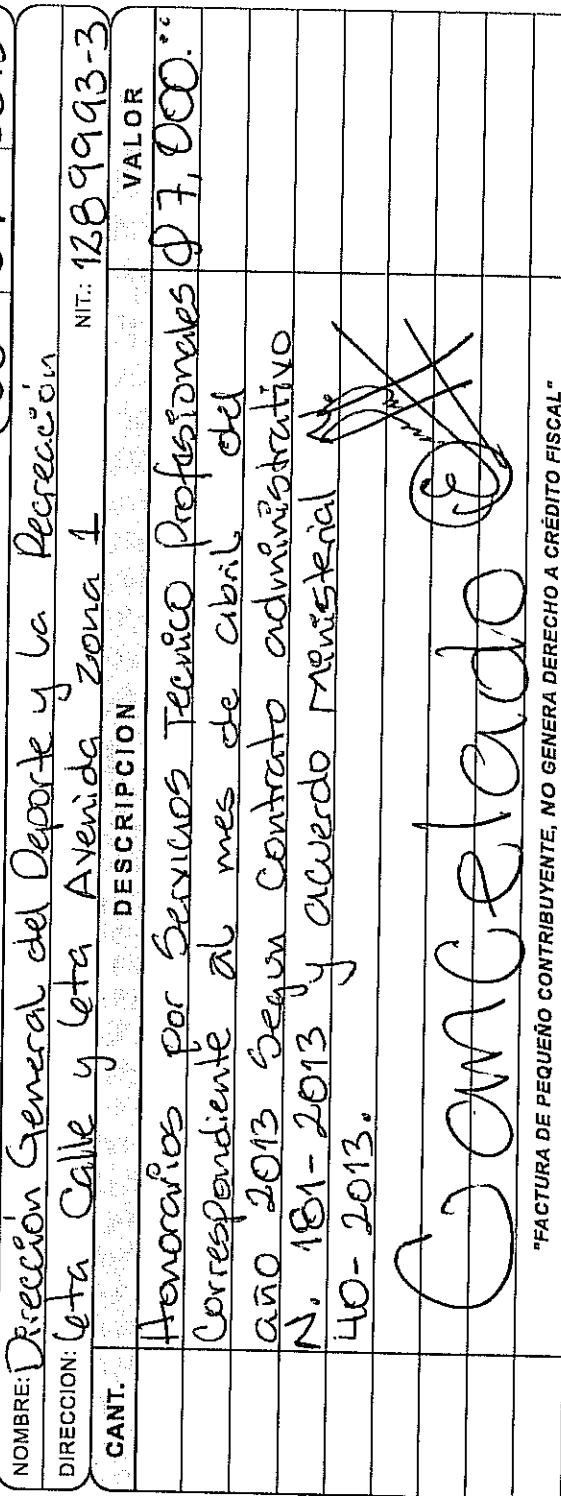 NOMBRE: Dirección General del Deporte y la Recreación
DIRECCION: 6ta Calle y 6ta Avenida Zona 1 NIT.: 1289993-3
CANT. DESCRIPCION VALOR
Honorarios por Servicios Tecnico Profesionales Q 7,000.00
Correspondiente al mes de abril del
año 2013 Segun Contrato administrativo
N. 181-2013 y acuerdo Ministerial
40-2013.
Cancelado
"FACTURA DE PEQUEÑO CONTRIBUYENTE, NO GENERA DERECHO A CRÉDITO FISCAL"